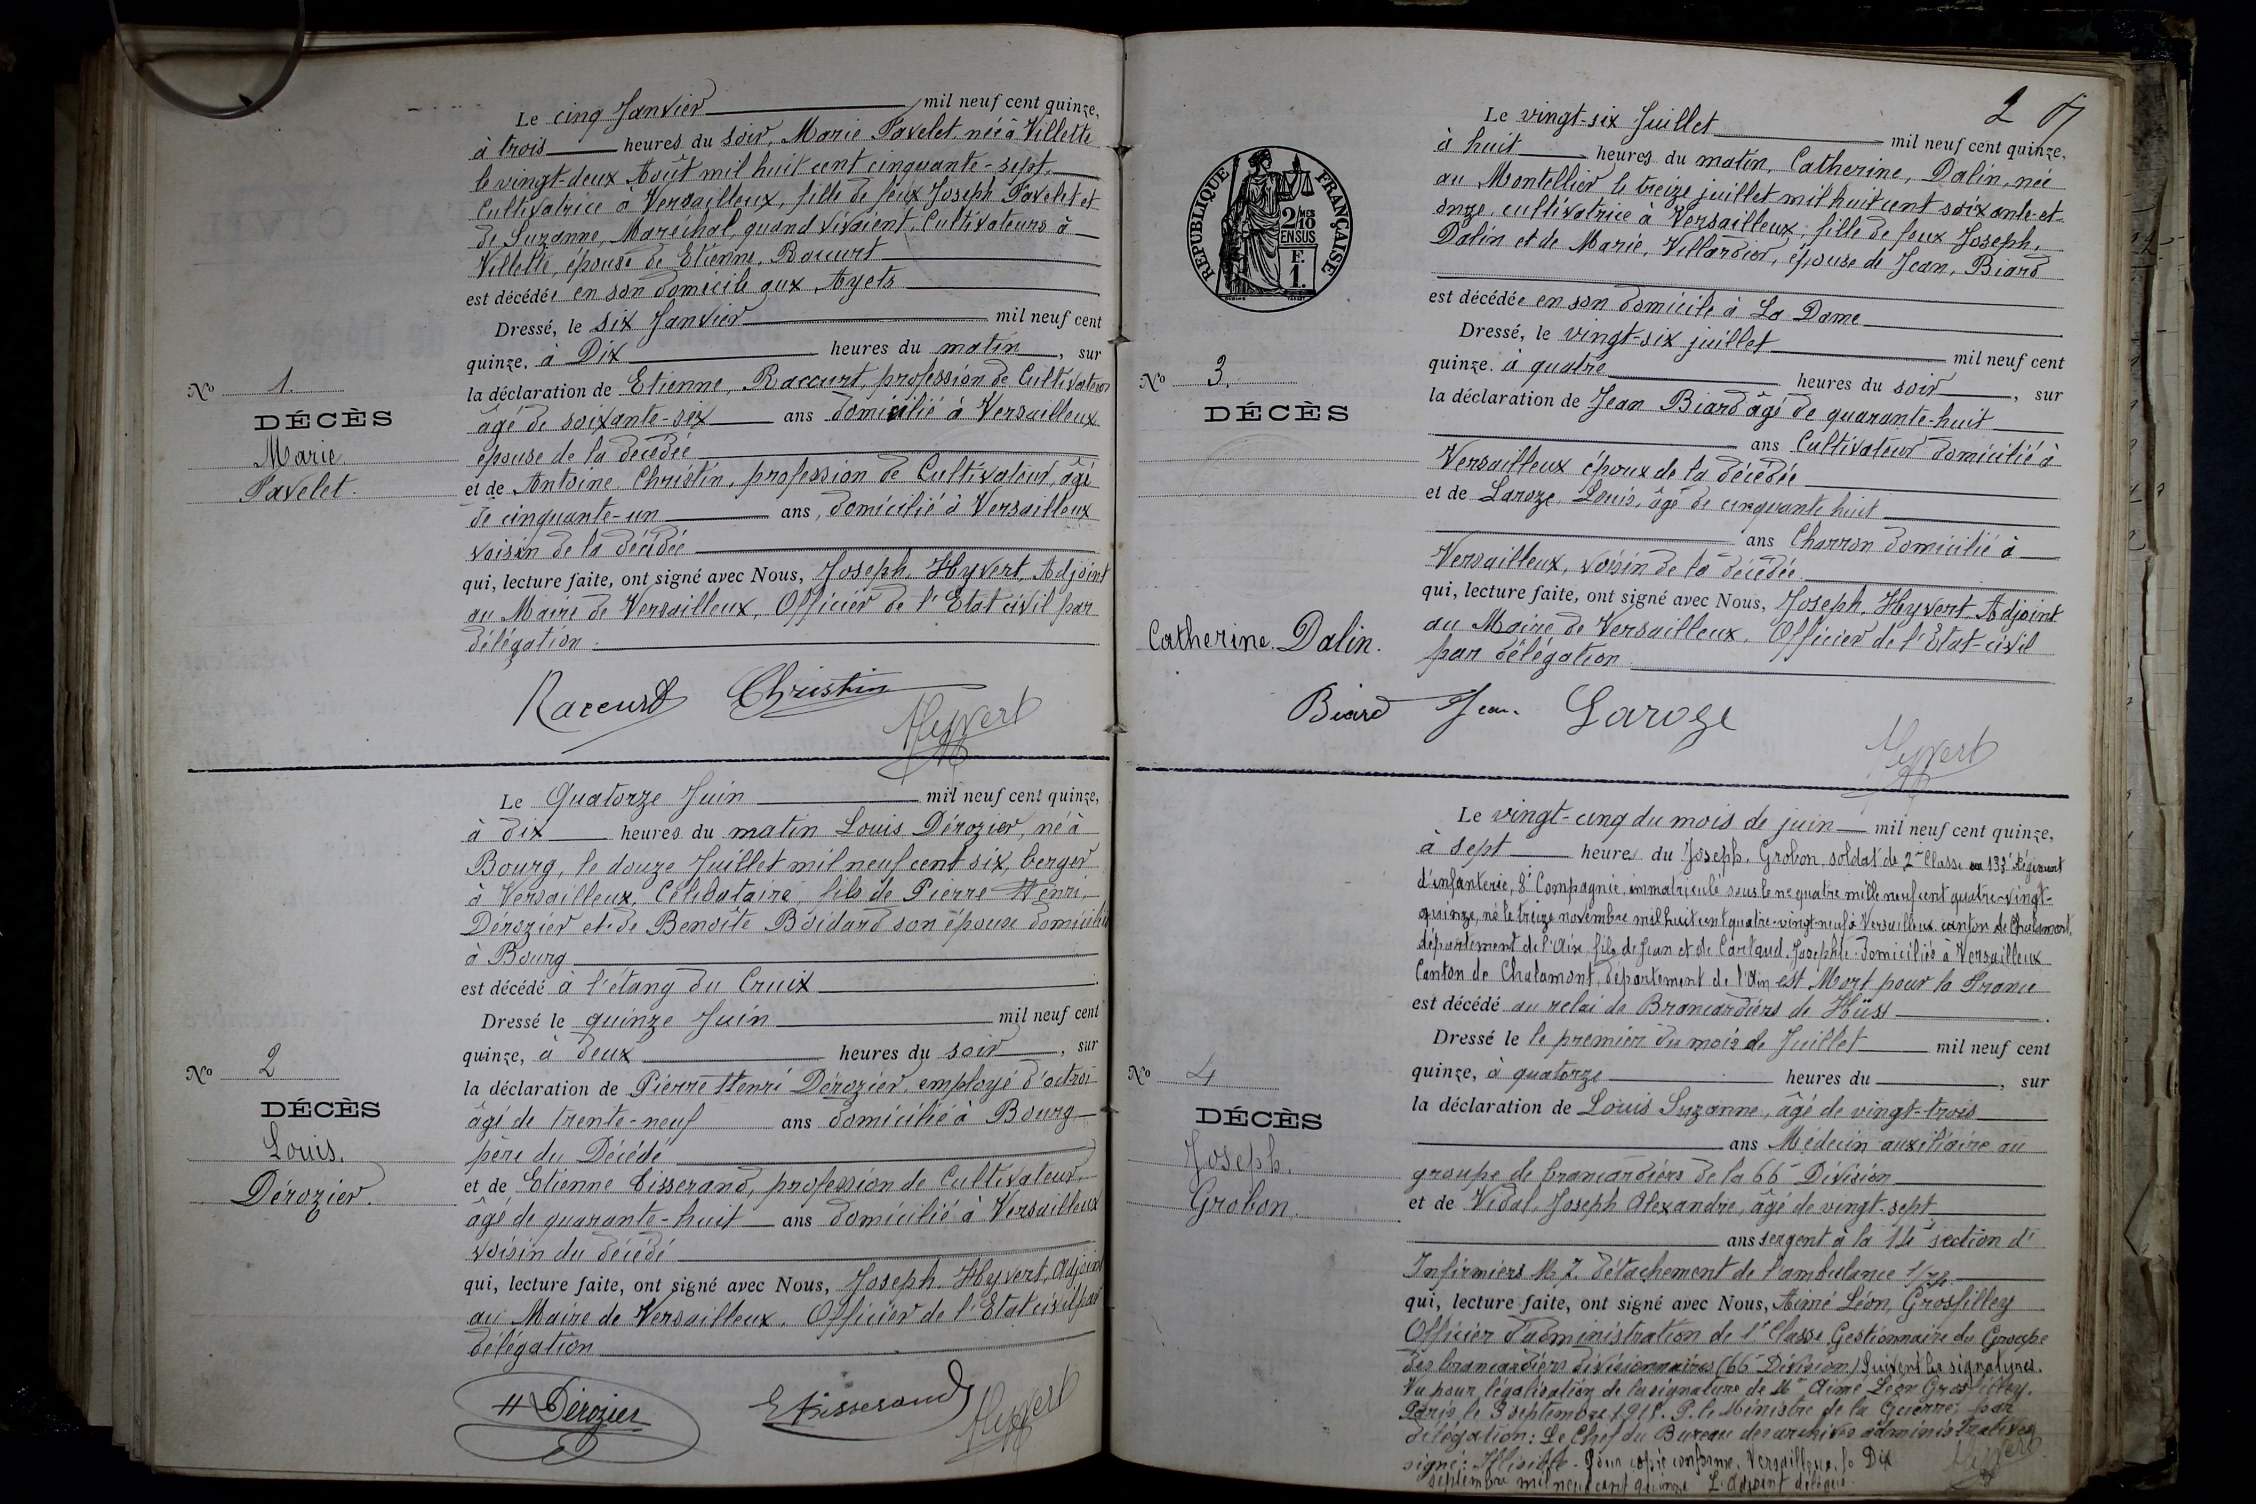 Le cinq Janvier mil neuf cent quinze,
à trois heures du soir, Marie Favelet née à Villette
le vingt-deux Août mil huit cent cinquante-sept,
Cultivatrice à Versailleux, fille de feux Joseph Favelet et
de Suzanne, Maréchal, quand vivaient, Cultivateurs à
Villette, épouse de Etienne, Raccurt
est décédée en son domicile aux Ayets
Dressé, le six Janvier mil neuf cent
quinze, à Dix heures du matin, sur
la déclaration de Etienne, Raccurt, profession de Cultivateur
âgé de soixante-six ans domicilié à Versailleux
épouse de la décédée
et de Antoine, Christin, profession de Cultivateur, âgé
de cinquante-un ans, domicilié à Versailleux
voisin de la décédée
qui, lecture faite, ont signé avec Nous, Joseph, Hyvert, Adjoint
au Maire de Versailleux, Officier de l'Etat civil par
délégation.
No 1.
DÉCÈS
Marie
Favelet.
Raccurt Christin
Hyvert
Le Quatorze Juin mil neuf cent quinze,
à dix heures du matin Louis Dérozier, né à
Bourg, le douze Juillet mil neuf cent six, berger
à Versailleux, Célibataire, fils de Pierre Henri
Dérozier et de Benoîte Boidard son épouse domiciliés
à Bourg
est décédé à l'étang du Cruix
Dressé le quinze Juin mil neuf cent
quinze, à deux heures du soir, sur
la déclaration de Pierre Henri Dérozier, employé d'octroi
âgé de trente-neuf ans domicilié à Bourg
père du Décédé
et de Etienne Tisserand, profession de Cultivateur,
âgé de quarante-huit ans domicilié à Versailleux
voisin du décédé
qui, lecture faite, ont signé avec Nous, Joseph Hyvert, Adjoint
au Maire de Versailleux, Officier de l'Etat civil par
délégation
No 2
DÉCÈS
Louis.
Dérozier.
H Dérozier E Tisserand Hyvert
2
RÉPUBLIQUE FRANÇAISE
2/10
EN SUS
F.
1.
Le vingt-six Juillet mil neuf cent quinze,
à huit heures du matin, Catherine, Dalin, née
au Montellier le treize juillet mil huit cent soixante-et-
onze, cultivatrice à Versailleux, fille de feux Joseph,
Dalin et de Marie, Villardier, épouse de Jean, Biard
est décédée en son domicile à La Dame
Dressé, le vingt-six juillet mil neuf cent
quinze, à quatre heures du soir, sur
la déclaration de Jean Biard âgé de quarante-huit
ans Cultivateur domicilié à
Versailleux époux de la décédée
et de Laroze, Louis, âgé de cinquante huit
ans Charron domicilié à
Versailleux, voisin de la décédée.
qui, lecture faite, ont signé avec Nous, Joseph, Hyvert, Adjoint
au Maire de Versailleux, Officier de l'Etat-civil
par délégation
No 3.
DÉCÈS
Catherine. Dalin.
Biard Jean. Laroze
Hyvert
Le vingt-cinq du mois de juin mil neuf cent quinze,
à sept heures du Joseph, Grobon, soldat de 2me Classe au 133e Régiment
d'infanterie, 8e Compagnie, immatriculé sous le no quatre mille neuf cent quatre-vingt-
quinze, né le treize novembre mil huit cent quatre-vingt-neuf à Versailleux canton de Chalamont,
département de l'Ain, fils de Jean et de Cartaud, Josephte domiciliés à Versailleux
Canton de Chalamont, département de l'Ain est Mort pour la France
est décédé au relai de Brancardiers de Hüss
Dressé le le premier du mois de Juillet mil neuf cent
quinze, à quatorze heures du , sur
la déclaration de Louis Suzanne, âgé de vingt-trois
ans Médecin auxiliaire au
groupe de brancardiers de la 66e Division
et de Vidal, Joseph Alexandre, âgé de vingt-sept
ans sergent à la 14e section d'
Infirmiers M. détachement de l'ambulance
qui, lecture faite, ont signé avec Nous, Aimé Léon, Grosfilley
Officier d'administration de 1re Classe Gestionnaire du Groupe
des brancardiers divisionnaires (66e Division) Suivent les signatures.
Vu pour légalisation de la signature de Mr Aimé Léon Grosfilley.
Paris le 3 septembre 1915. P. le Ministre de la Guerre, par
délégation: Le Chef du Bureau des archives administratives
signé: Illisible - Pour copie conforme, Versailleux, le Dix
septembre mil neuf cent quinze L'Adjoint délégué.
Hyvert
No 4
DÉCÈS
Joseph.
Grobon.